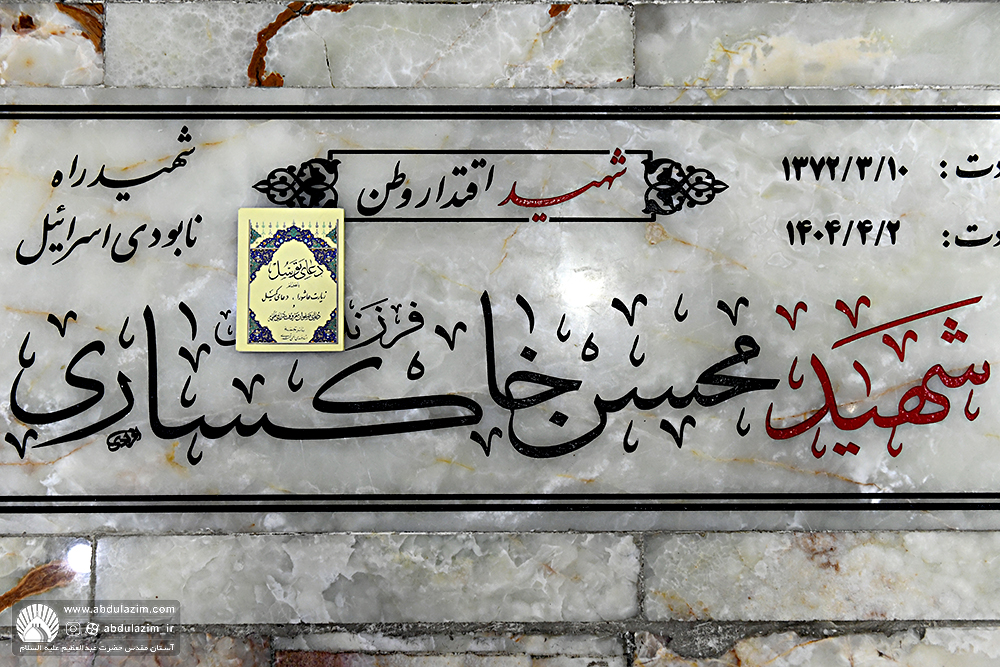 شهید اقتدار وطن
دت : ۱۳۷۲/۳/۱۰
دت : ۱۴۰۴/۴/۲
شهید راه
نابودی اسرائیل
فرزند
شهید محسن خاکساری
دعای توسل
زیارت عاشورا ، دعای کمیل
www.abdulazim.com
abdulazim_ir
آستان مقدس حضرت عبدالعظیم علیه السلام